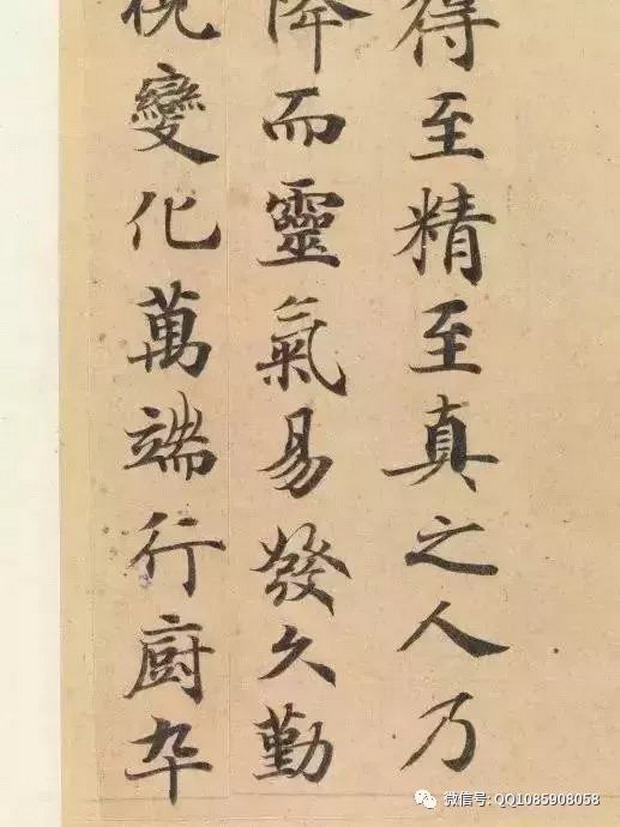 得至精至真之人乃
降而靈氣易發久勤
視變化萬端行廚卒
微信号: QQ1085908058